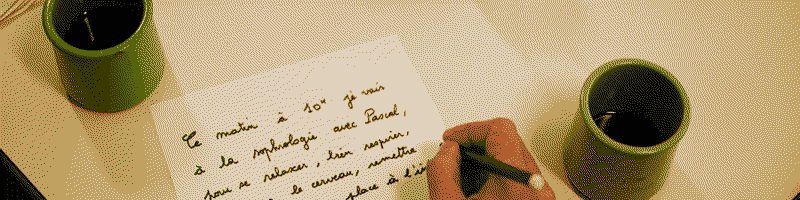 Ce matin à 10H je vais
à la sophrologie avec Pascal,
pour se relaxer, bien respirer,
le cerveau, remettre
place à l'in